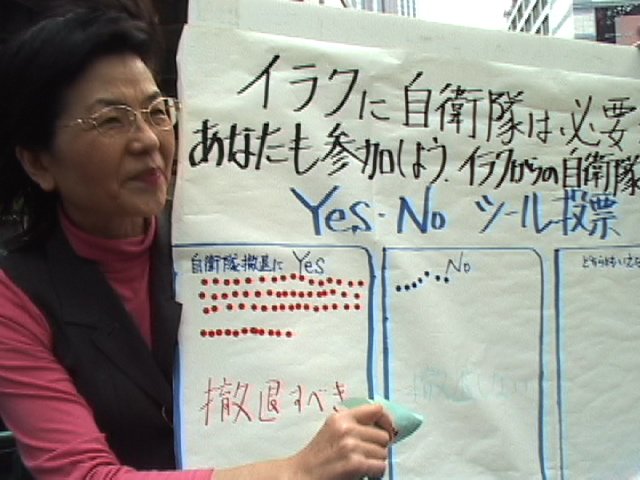 イラクに自衛隊は、必要
あなたも参加しよう.イラクからの自衛隊
Yes-No シール投票
自衛隊撤退に Yes
No
撤退すべき